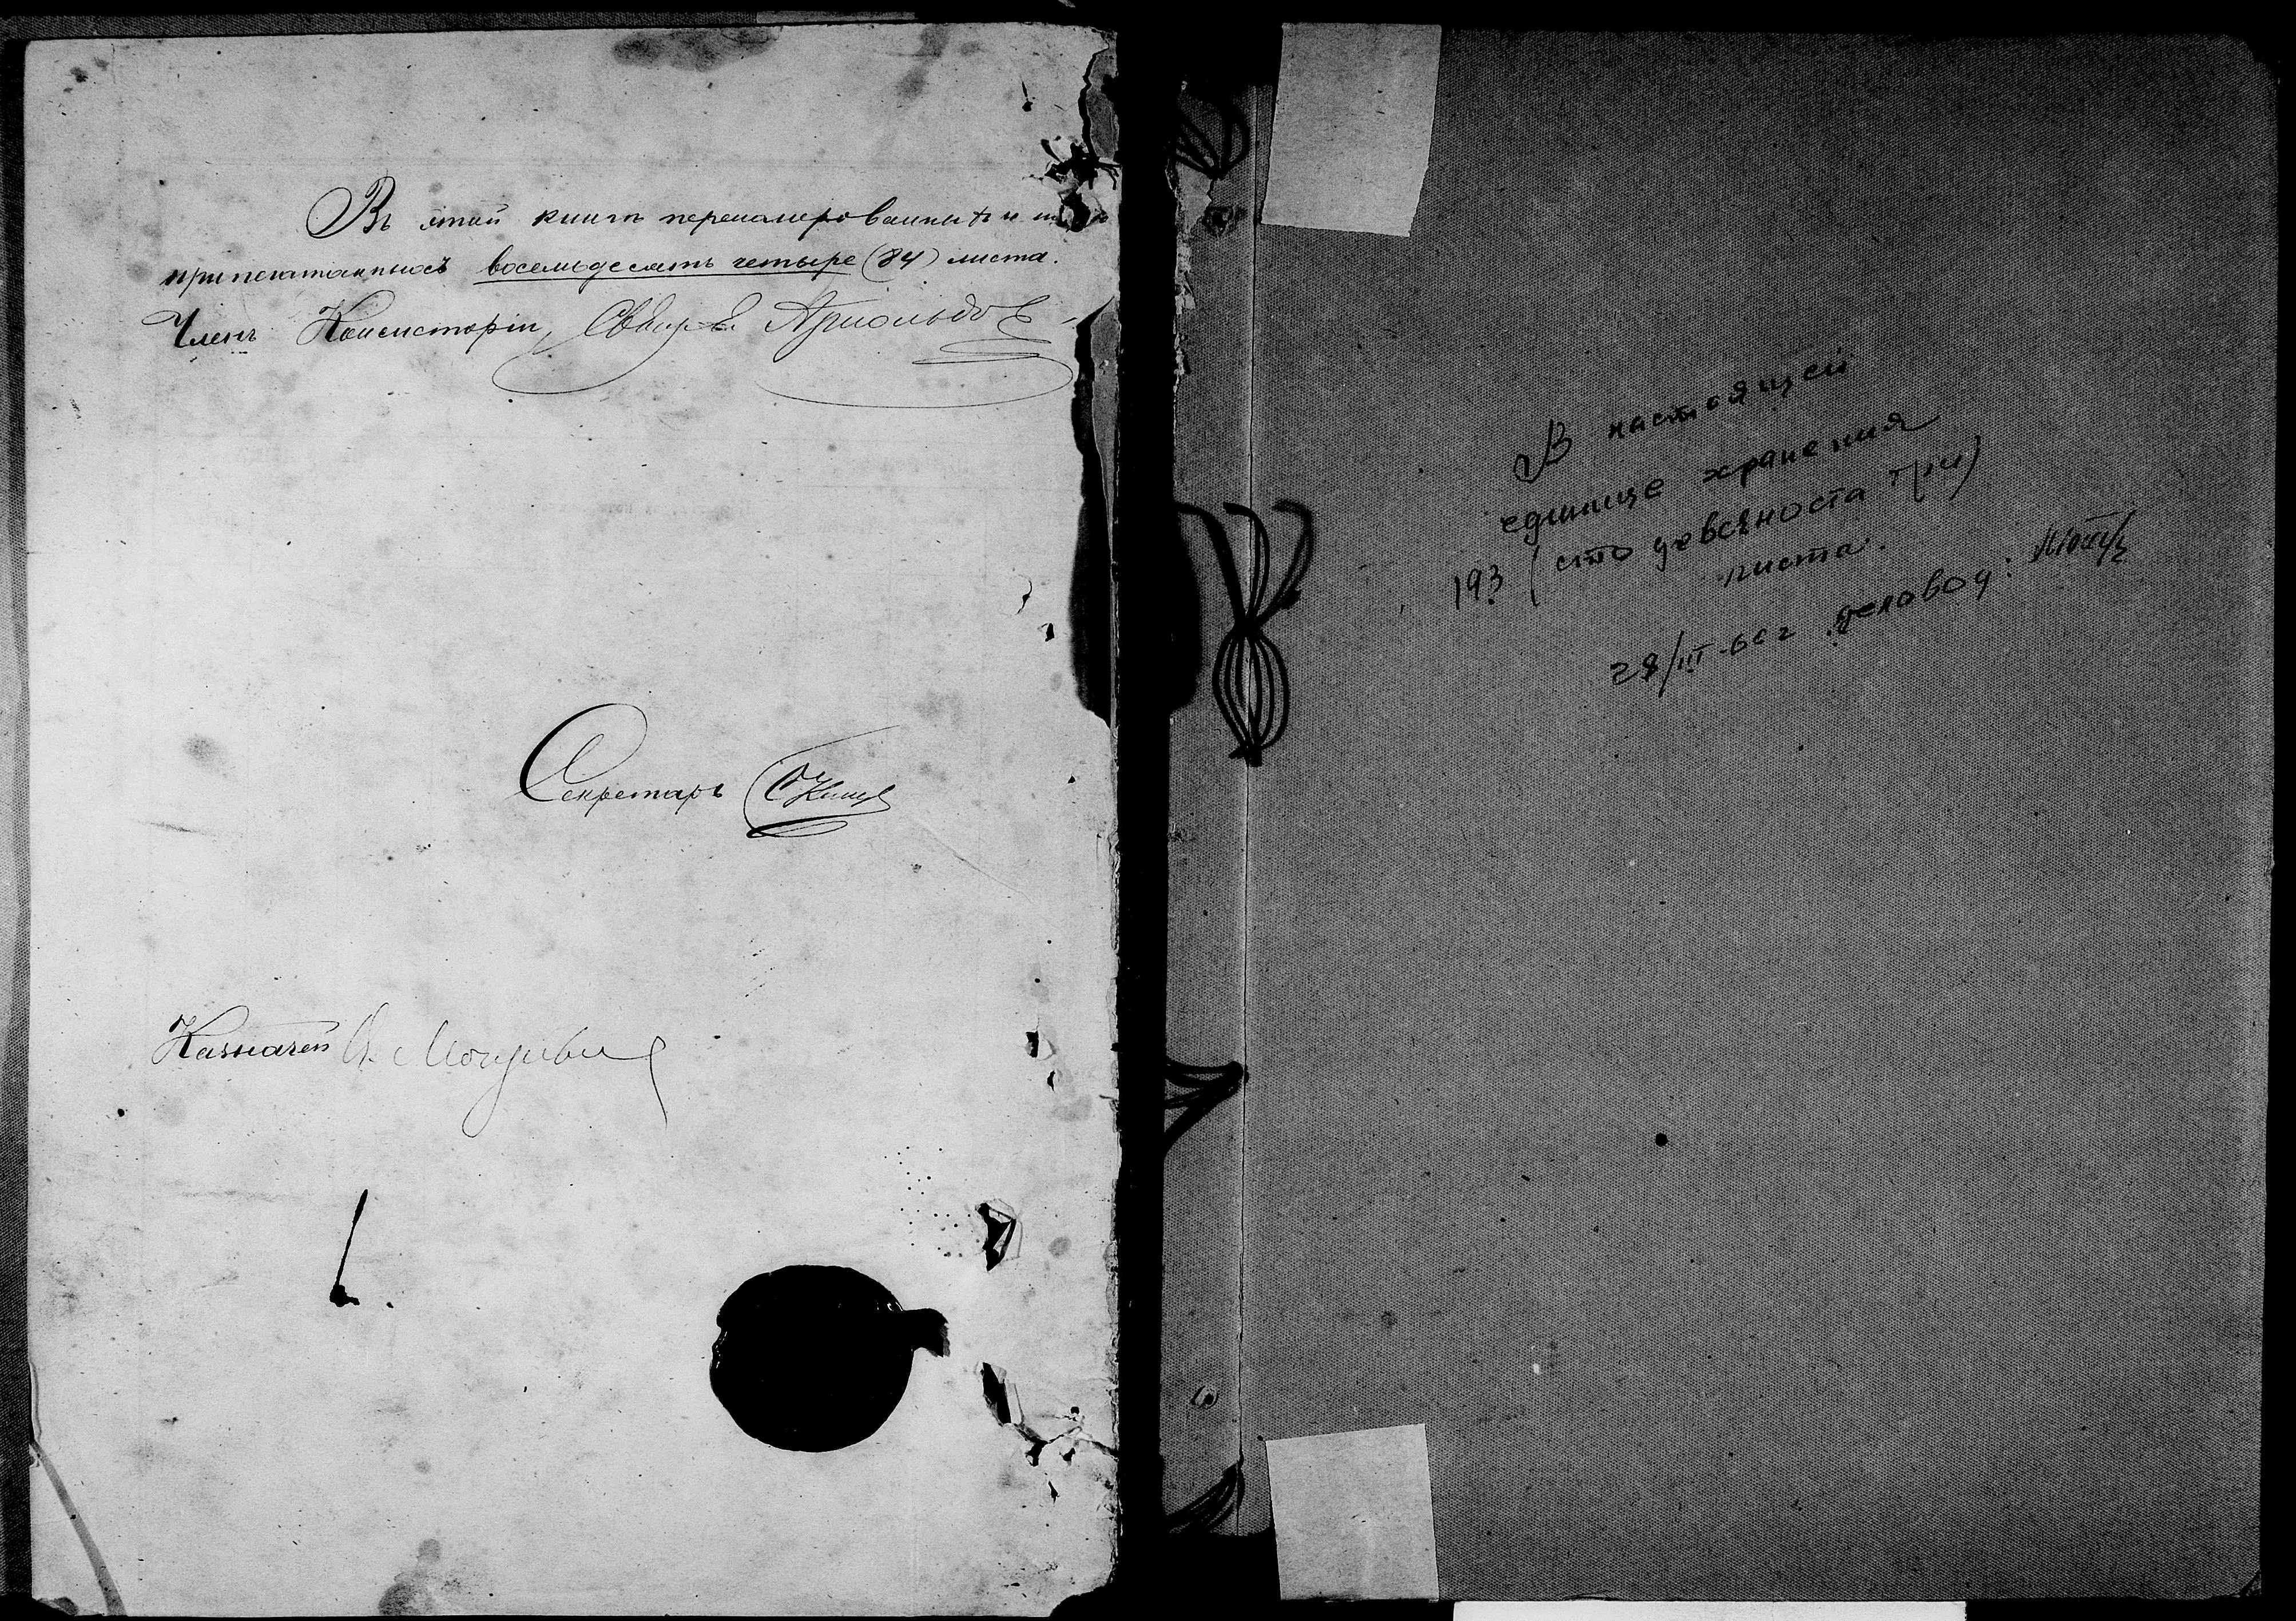 Въ этой книгѣ перенумерованныхъ и
припечатанныхъ восемьдесятъ четыре (84) листа.
Членъ Консисторіи, Свящ. А. Арнольдовъ
Секретарь
Казначей
В настоящей
единице хранения
193 (сто девяносто три)
листа.
28/III-66г деловод: